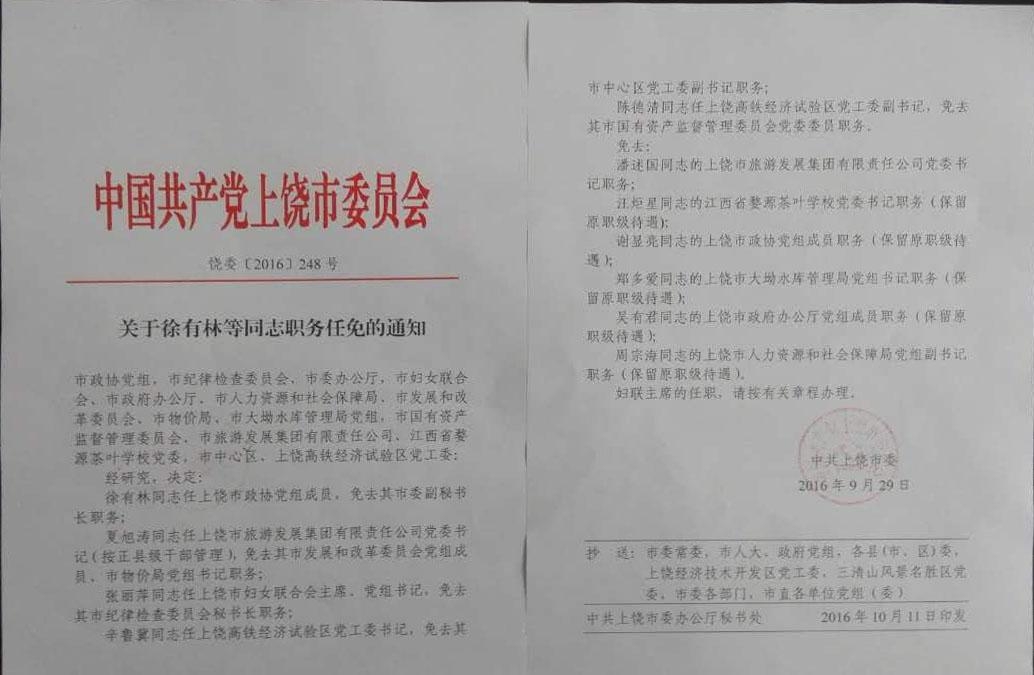 中国共产党上饶市委员会
饶委〔2016〕248 号
关于徐有林等同志职务任免的通知
市政协党组，市纪律检查委员会、市委办公厅，市妇女联合
会、市政府办公厅、市人力资源和社会保障局、市发展和改
革委员会、市物价局、市大坳水库管理局党组，市国有资产
监督管理委员会、市旅游发展集团有限责任公司、江西省婺
源茶叶学校党委，市中心区、上饶高铁经济试验区党工委：
经研究，决定：
徐有林同志任上饶市政协党组成员，免去其市委副秘书
长职务；
夏旭涛同志任上饶市旅游发展集团有限责任公司党委书
记（按正县级干部管理），免去其市发展和改革委员会党组成
员、市物价局党组书记职务；
张丽萍同志任上饶市妇女联合会主席、党组书记，免去
其市纪律检查委员会秘书长职务；
辛鲁冀同志任上饶高铁经济试验区党工委书记，免去其
市中心区党工委副书记职务；
陈德清同志任上饶高铁经济试验区党工委副书记，免去
其市国有资产监督管理委员会党委委员职务。
免去：
潘述国同志的上饶市旅游发展集团有限责任公司党委书
记职务；
汪炬星同志的江西省婺源茶叶学校党委书记职务（保留
原职级待遇）；
谢显亮同志的上饶市政协党组成员职务（保留原职级待
遇）；
郑多爱同志的上饶市大坳水库管理局党组书记职务（保
留原职级待遇）；
吴有君同志的上饶市政府办公厅党组成员职务（保留原
职级待遇）；
周宗海同志的上饶市人力资源和社会保障局党组副书记
职务（保留原职级待遇）。
妇联主席的任职，请按有关章程办理。
中共上饶市委
2016 年 9 月 29 日
抄 送：市委常委，市人大、政府党组，各县（市、区）委，
上饶经济技术开发区党工委，三清山风景名胜区党
委，市委各部门，市直各单位党组（委）
中共上饶市委办公厅秘书处 2016 年 10 月 11 日印发